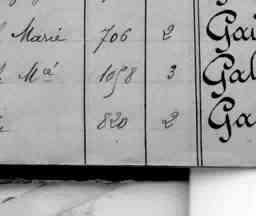 Marié 706 2 Gai
Mᵃ 1058 3 Gal
820 2 Ga